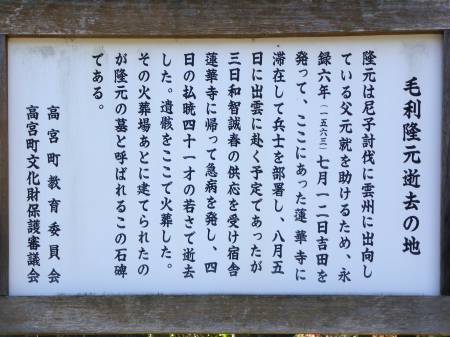 毛利隆元逝去の地
隆元は尼子討伐に雲州に出向し
ている父元就を助けるため、永
録六年(一五六三)七月一二日吉田を
発って、ここにあった蓮華寺に
滞在して兵士を部署し、八月五
日に出雲に赴く予定であったが
三日和智誠春の供応を受け宿舎
蓮華寺に帰って急病を発し、四
日の払暁四十一才の若さで逝去
した。遺骸をここで火葬した。
その火葬場あとに建てられたの
が隆元の墓と呼ばれるこの石碑
である。
高宮町教育委員会
高宮町文化財保護審議会